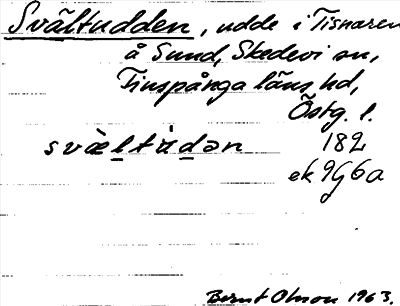 Svältudden, udde i Tisnaren
å Sund, Skedevi sn,
Finspånga läns hd,
Östg. l.
svæ̀ltùdən 182
ek 9G6a
Bernt Olsson 1963.